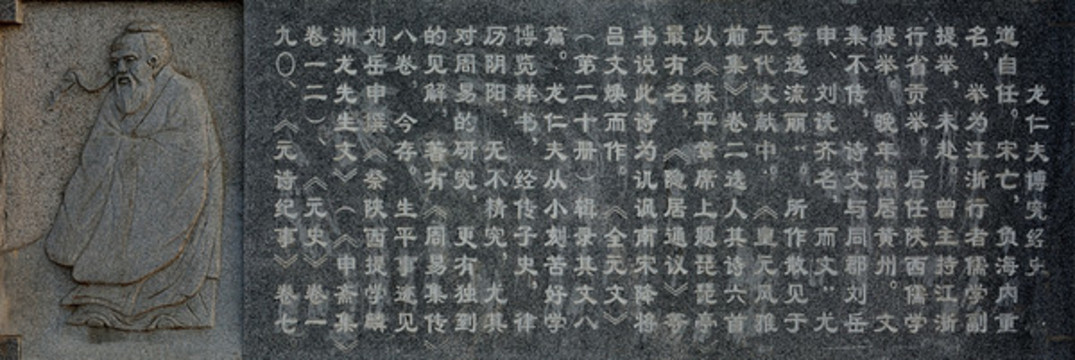 龙仁夫博究经史，
道自任。宋亡，负海内重
名，举为江浙行省儒学副
提举，未赴。曾主持江浙
行省贡举。后任陕西儒学
提举。晚年寓居黄州。文
集不传，诗文与同郡刘岳
申、刘诜齐名，而文“尤
奇逸流丽”。所作散见于
元代文献中。《皇元风雅
前集》卷二选人其诗六首
以《陈平章席上题琵琶亭
最有名，《隐居通议》等
书说此诗为讥讽南宋降将
吕文焕而作。《全元文》
（第二十册）辑录其文八
篇。龙仁夫从小刻苦好学
博览群书，经传子史，律
历阴阳，无不精究，尤其
对周易的研究，更有独到
的见解，著有《周易集传
八卷，今存。生平事迹见
刘岳申撰《祭陕西提学麟
洲龙先生文》（《申斋集
卷一二）、《元史》卷一
九〇、《元诗纪事》卷七